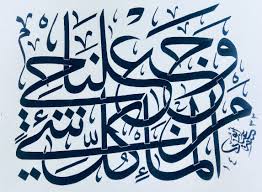 وجعلنا من
الماء كل شيء حي